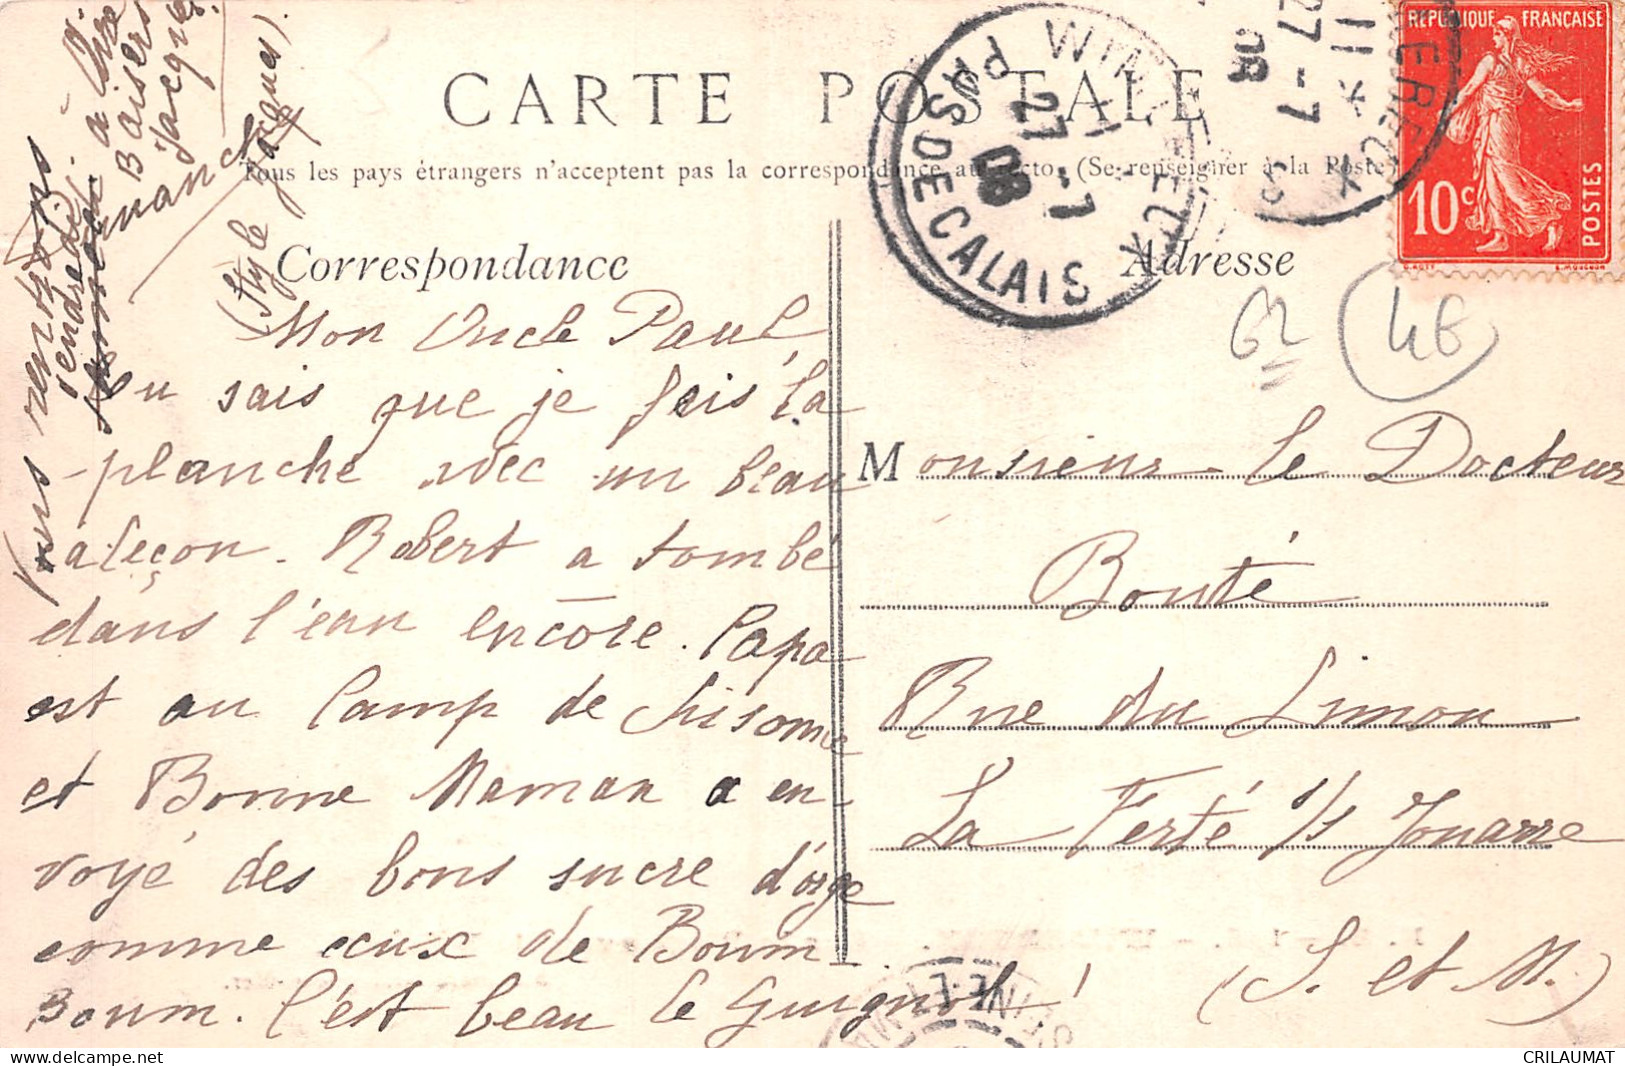 CARTE POSTALE
Tous les pays étrangers n'acceptent pas la correspondance au recto. (Se renseigner à la Poste)
Correspondance
Adresse
RÉPUBLIQUE FRANÇAISE
10c
POSTES
WIMEREUX
PAS DE CALAIS
27 - 7
08
WIMEREUX
11
27 - 7
08
62
46
Mon Oncle Paul
Tu sais que je fais la
planche avec un beau
caleçon. Robert a tombé
dans l'eau encore. Papa
est au Camp de Sissonne
et Bonne Maman a en-
voyé des bons sucre d'orge
comme ceux de Boum
Boum. C'est beau le Guignol!
(Style Jacques).
Nous rentrons
vendredi
dimanche
à
Baisers
Jacques
Monsieur le Docteur
Bouté
Rue du Limon
La Ferté s/s Jouarre
(S. et M.)
SEINE ET MA
CRILAUMAT